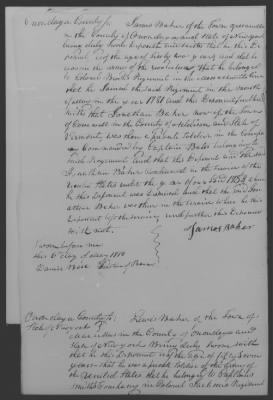 Onondaga County ss James Baker of the Town of
in the County of Onondaga and State of New York
being duly sworn deposeth and saith that he this De
ponent is of the age of sixty two years and that he
was in the army of the revolution that he belonged
to Colonel Regiment in the Massachusetts line
that he joined the said Regiment in the month
of May in the year 1781 and this Deponent further
saith that Jonathan Baker now of the Town
of Cornwall in the County of Addison and State of
Vermont, was then a private soldier in the Company
Commanded by Captain Bates belonging to
such Regiment and that this Deponent and the said
Jonathan Baker continued in the service of the
United States until the year of our Lord when
he this Deponent was Dismissed and that the said Jon
athan Baker was then in the service when he this
Deponent left the service and further this Deponent
saith not.
James Baker
Sworn before me
this 6th day of May 1818
Daniel Justice of Peace
Onondaga County ss: Lewis Baker of the Town of
State of New York
in the County of Onondaga and
State of New York Being duly sworn saith
that he this Deponent is of the age of fifty seven
years that he was a private soldier of the army of
the United States that he belonged to Captain
Smiths Company in Colonel Jacksons Regiment